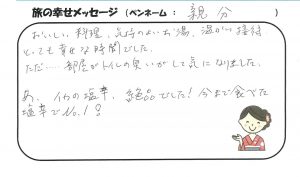 旅の幸せメッセージ（ペンネーム： 親分 ）
おいしい料理、気持のよいお湯、温かい接待
とっても幸せな時間でした。
ただ…部屋がトイレの臭いがして気になりました。
あ、イカの塩辛、絶品でした！今まで食べた
塩辛でNo.1！